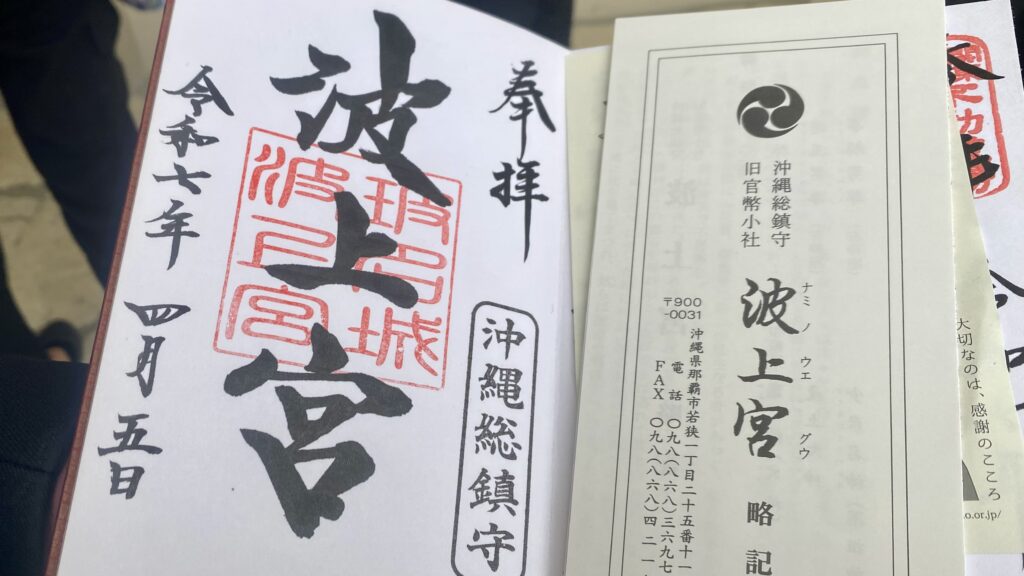 奉拝
波上宮
沖縄総鎮守
令和七年
四月五日
沖縄総鎮守
旧官幣小社
波上宮 略記
ナミノウエグウ
〒900
-0031
沖縄県那覇市若狭一丁目二十五番十一
電話 〇九八(八六八)三六九七
FAX 〇九八(八六八)四二一
大切なのは、感謝のこころ
o.or.jp/